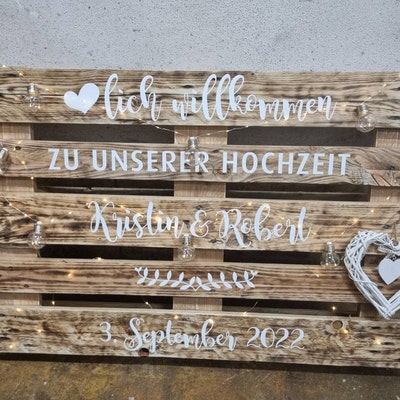 ❤lich willkommen
ZU UNSERER HOCHZEIT
Kristin & Robert
3. September 2022